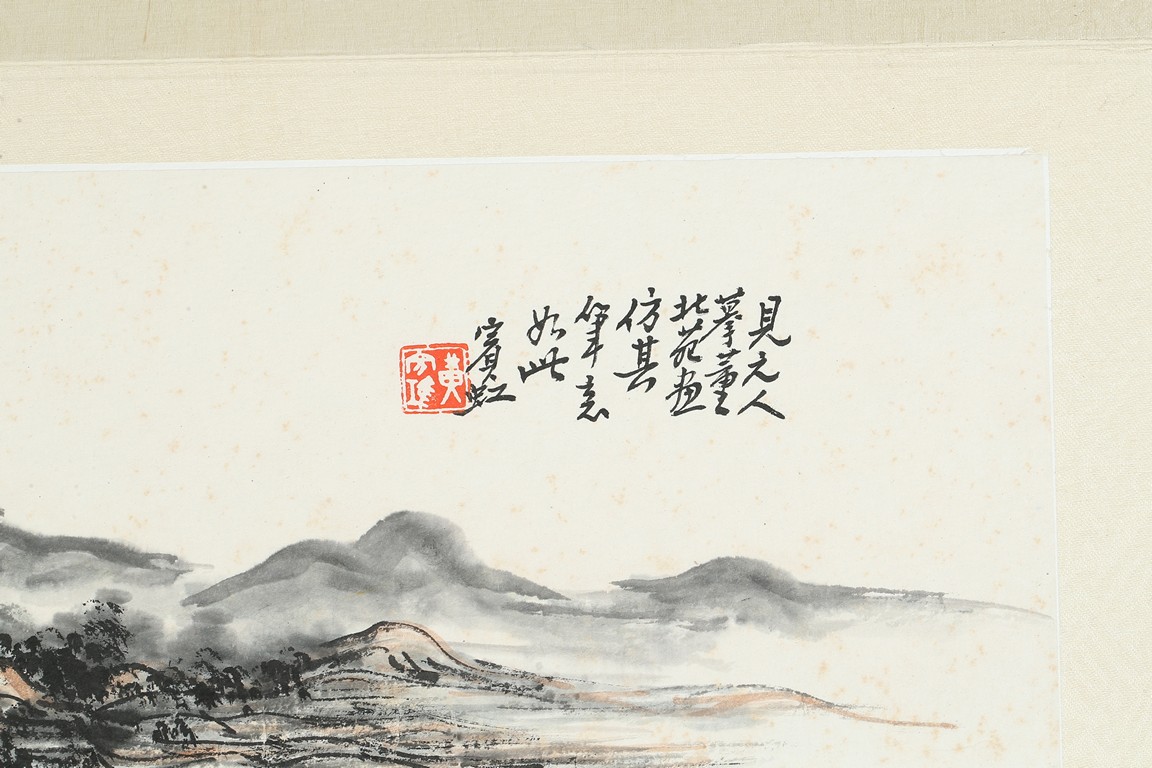 見元人
摹董
北苑畫
仿其
筆意
如此
賓虹
黃
賓虹